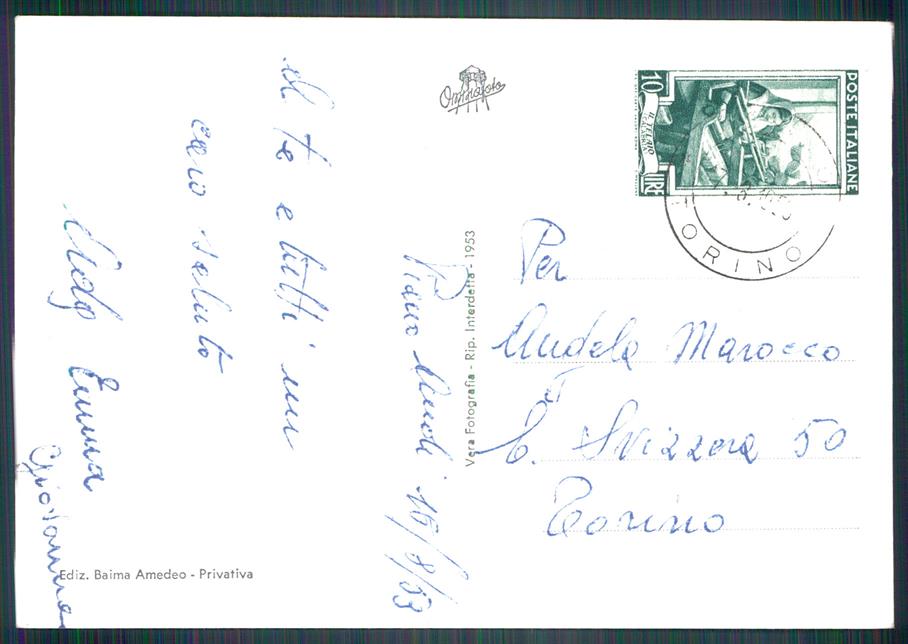 A te e tutti un
caro saluto
Aldo Emma
Giovanna
Piano Audi 16/8/53
Ediz. Baima Amedeo - Privativa
Omniafoto
Vera Fotografia - Rip. Interdetta - 1953
POSTE ITALIANE
10
LIRE
IL TELAIO
ORINO
Per
Angela Marocco
C. Svizzera 50
Torino